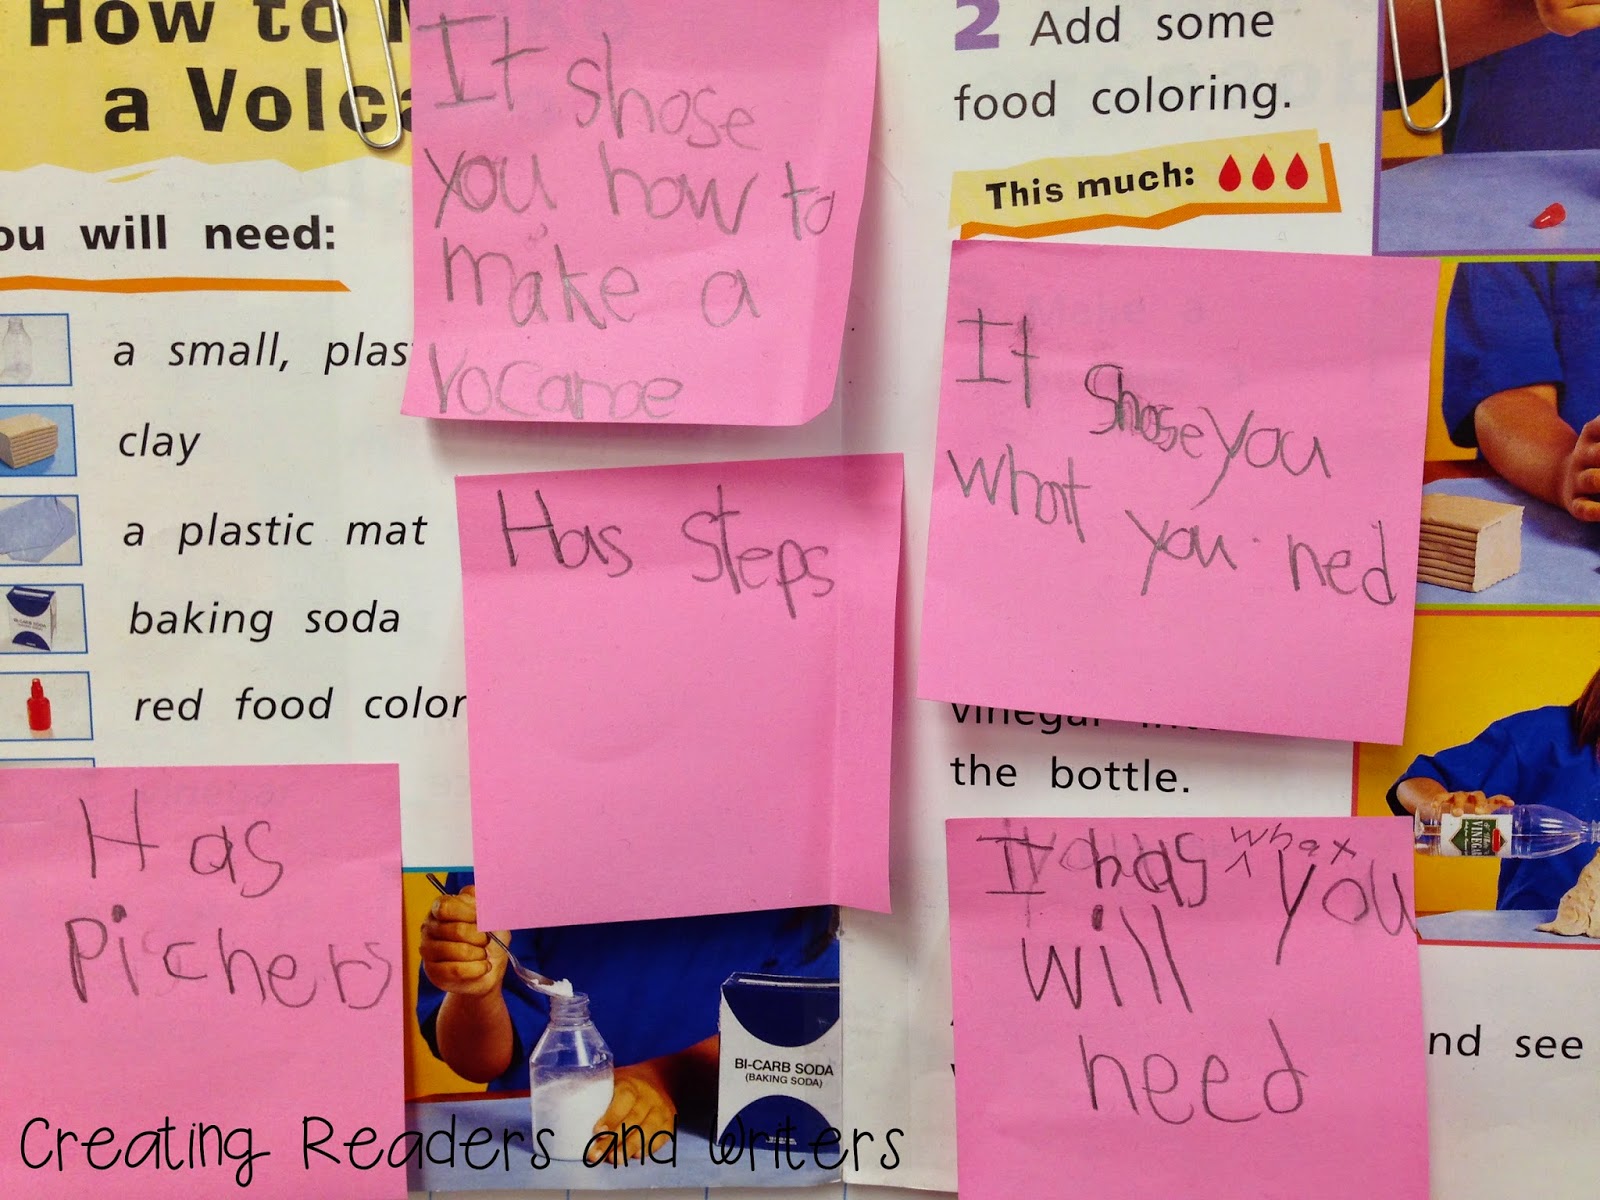 How to M
a Volca
ou will need:
a small, plast
clay
a plastic mat
baking soda
BI-CARB SODA
red food color
It shose
you how to
make a
Vocanoe
Has steps
Has
Pichers
BI-CARB SODA
(BAKING SODA)
2 Add some
food coloring.
This much:
It shose you
what you ned
vinegar int
the bottle.
VINEGAR
It has what you
will
need
nd see
Creating Readers and Writers